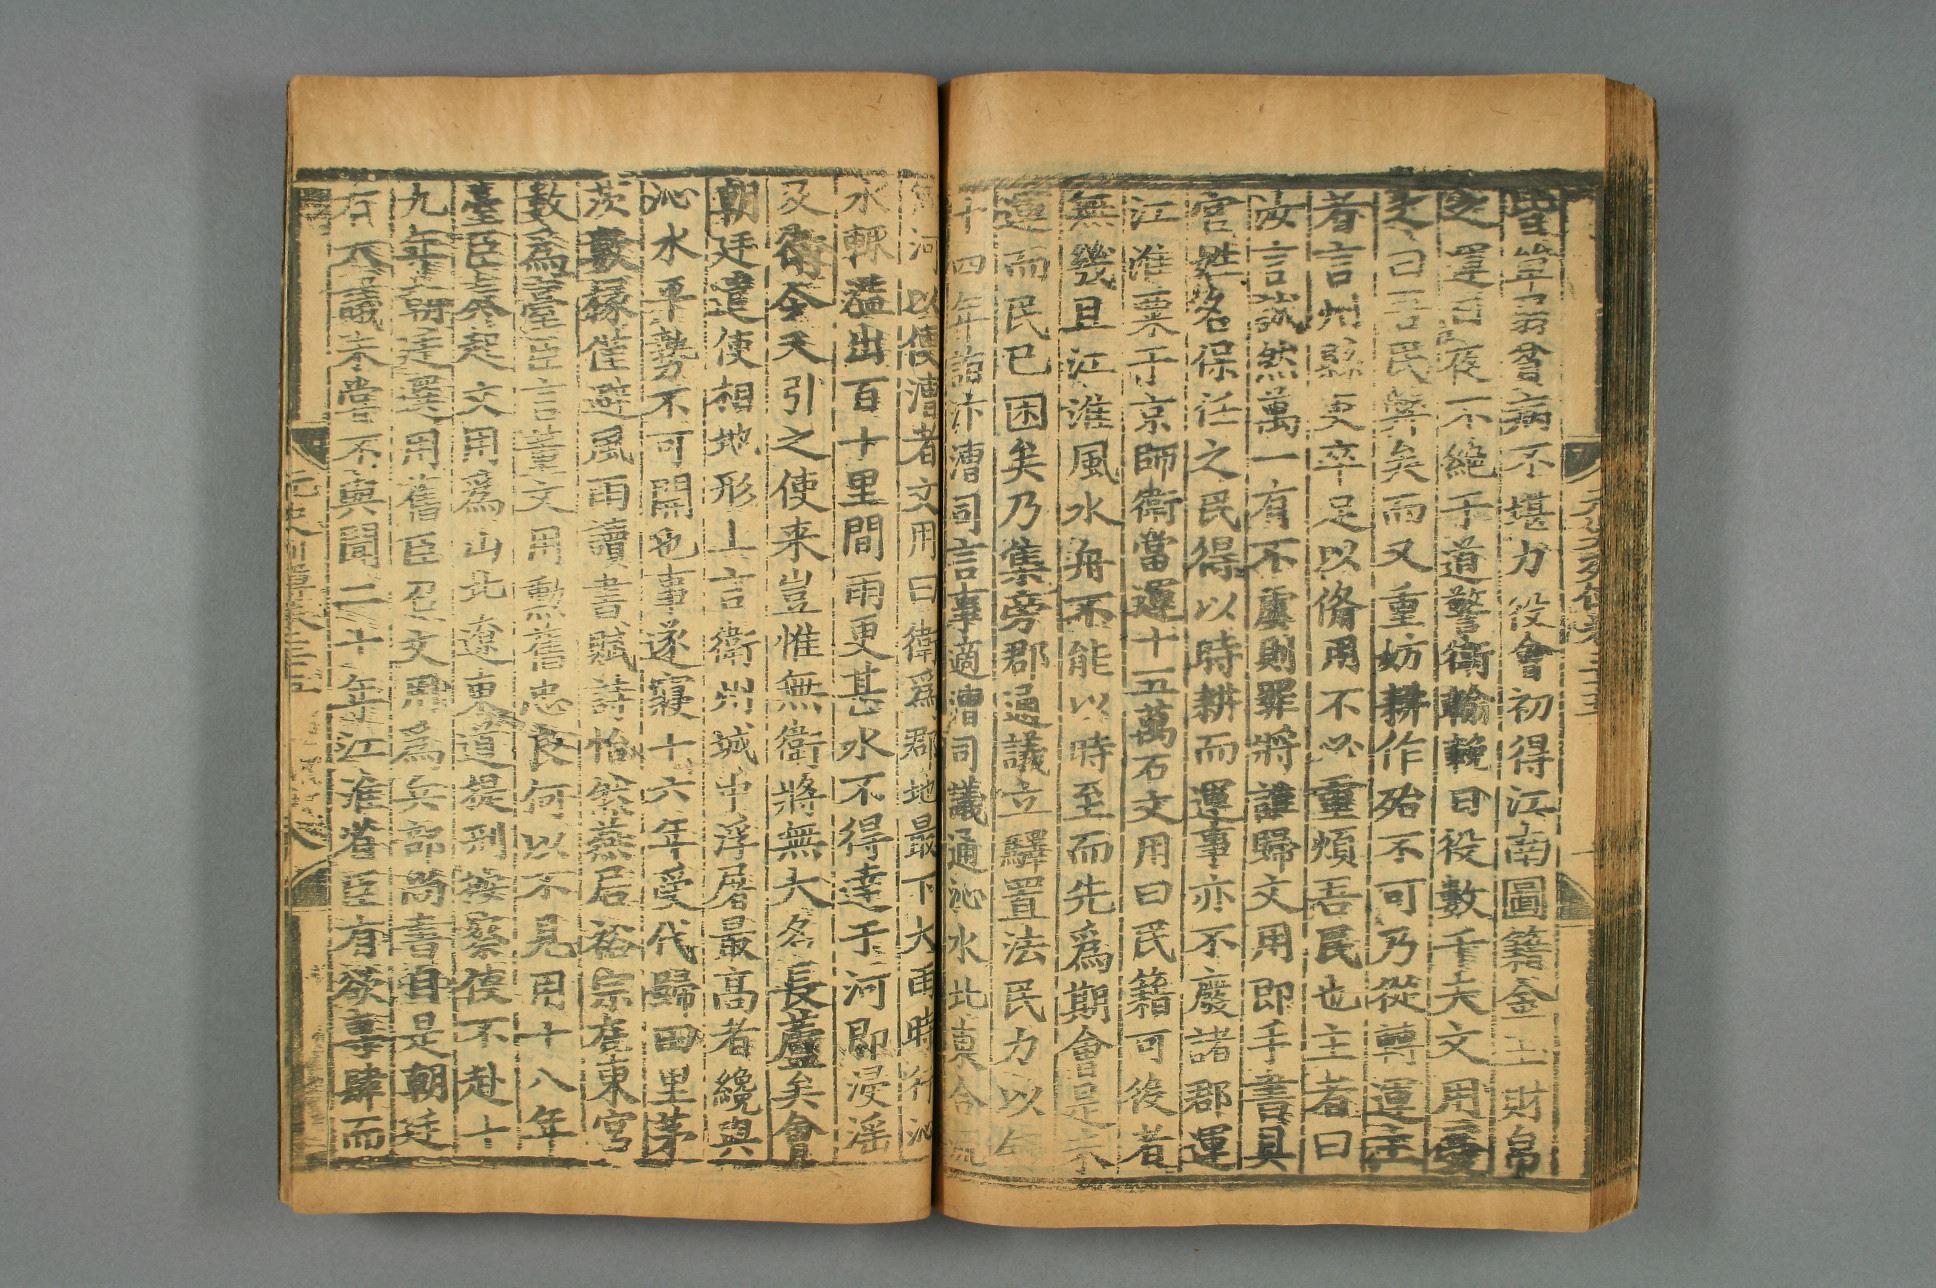 單弱貧病不堪力役會初得江南圖籍金玉財帛
之運日夜不絕于道警衛輸輓日役數千夫文用憂
之曰吾民弊矣而又重妨耕作殆不可乃從轉運主
者言州縣吏卒足以俻用不必重煩吾民也主者曰
汝言誠然萬一有不虞則罪將誰歸文用即手書具
官姓名保任之民得以時耕而運事亦不廢諸郡運
江淮粟于京師衛當運十五萬石文用曰民籍可役者
無幾且江淮風水舟不能以時至而先爲期會是未
運而民已困矣乃集旁郡通議立驛置法民力以
十四年詣汴漕司言事適漕司議通沁水北東合流
河以便漕者文用曰衛爲郡地最下大雨時行沁
水輒溢出百十里間雨更甚水不得達于河即浸淫
及衛今天引之使来豈惟無衛將無大名長蘆矣會
朝廷遣使相地形上言衛州城中浮屠最高者纔與
沁水平勢不可開也事遂寢十六年受代歸田里茅
茨數椽僅避風雨讀書賦詩怡然燕居裕宗在東宮
數爲臺臣言董文用勲舊忠良何以不見用十八年
臺臣奏起文用爲山北遼東道提刑按察使不赴十
九年朝廷選用舊臣召文用爲兵部尚書自是朝廷
有大議未嘗不與聞二十年江淮省臣有欲專肆而
元史列傳卷三十五
元史列傳卷三十五